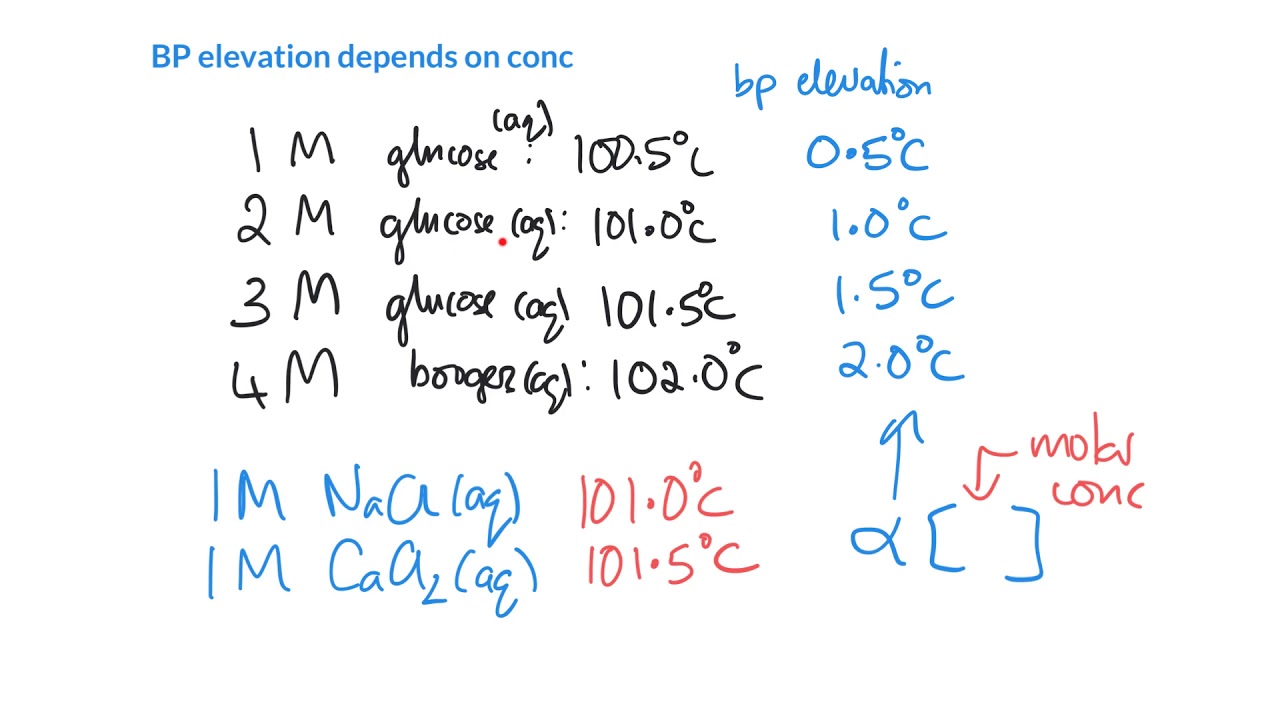 BP elevation depends on conc
bp elevation
1 M glucose (aq) : 100.5°C 0.5°C
2 M glucose (aq) : 101.0°C 1.0°C
3 M glucose (aq) 101.5°C 1.5°C
4 M booger (aq) : 102.0°C 2.0°C
molar
conc
1M NaCl (aq) 101.0°C
α [ ]
1M CaCl₂ (aq) 101.5°C